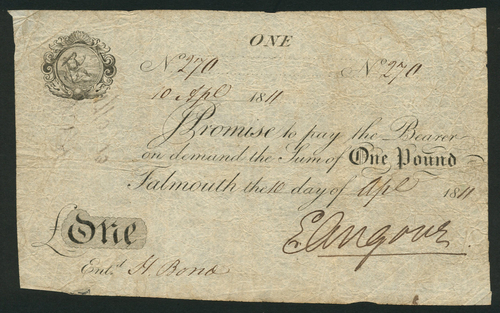 ONE
No 270 No 270
10 Apl 1811
I Promise to pay the Bearer
on demand the Sum of One Pound
Falmouth the 10 day of Apl 1811
E Angove
£ One
Entd. H Bond